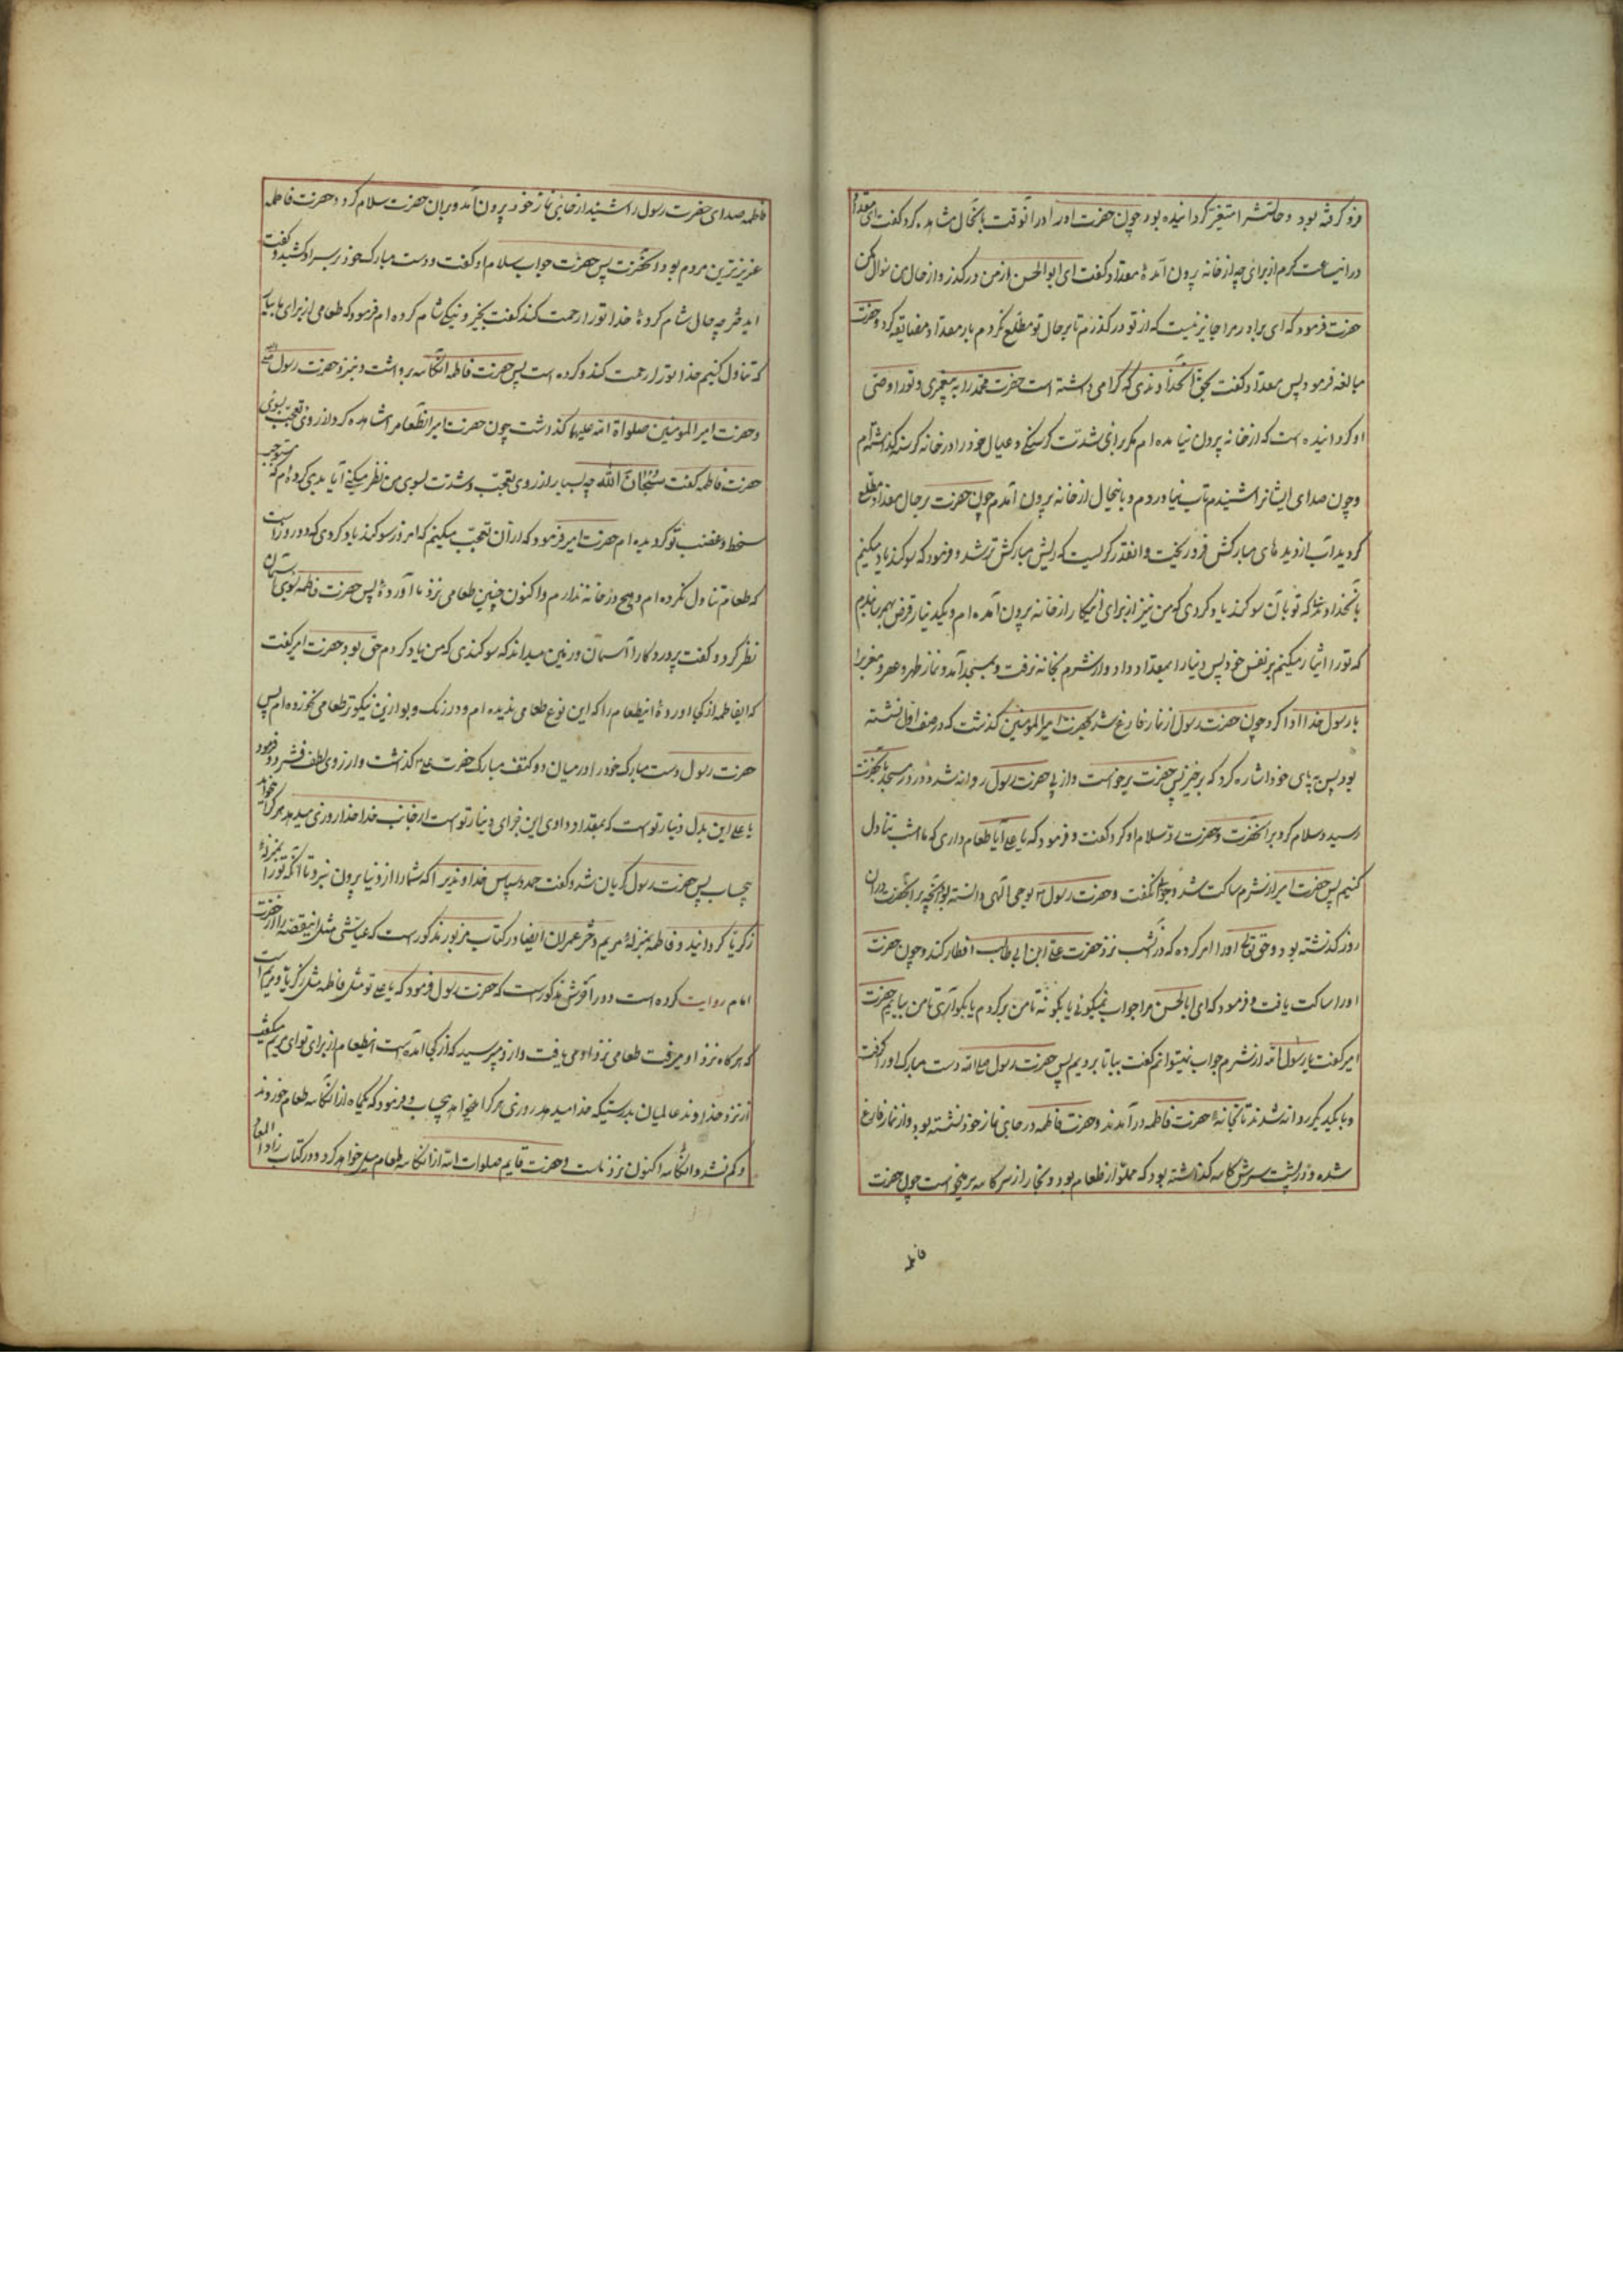 فرو گرفته بود و حالتش را متغیر گردانیده بود چون حضرت او را در آنوقت بآنحال مشاهده کرد گفت ای مقداد
درین ساعت گرم از برای چه از خانه بیرون آمدهٔ مقداد گفت ای ابوالحسن از من درگذر و از حال من سؤال مکن
حضرت فرمود که ای برادر مرا جایز نیست که از تو درگذرم تا بر حال تو مطلع نگردم باز مقداد مضایقه کرد و حضرت
مبالغه فرمود پس مقداد گفت بحق آنخداوندی که گرامی داشته است حضرت محمد را به پیغمبری و تو را وصی
او گردانیده است که از خانه بیرون نیامده ام مگر برای شدت گرسنگی و عیال خود را در خانه گرسنه گذاشته‌ام
و چون صدای ایشانرا شنیدم تاب نیاوردم و باینحال از خانه بیرون آمدم چون حضرت بر حال مقداد مطلع
گردید آب از دیده های مبارکش فرو ریخت و آنقدر گریست که ریش مبارکش تر شد و فرمود که سوگند یاد میکنم
بآنخداوندیکه تو بآن سوگند یاد کردی که من نیز از برای اینکار از خانه بیرون آمده ام و یکدینار قرض بهم رسانیدم
که تو را ایثار میکنم بر نفس خود پس دینار را بمقداد داد و از شرم بخانه نرفت و بمسجد آمد و نماز ظهر و عصر و مغرب را
با رسول خدا ادا کرد چون حضرت رسول از نماز فارغ شد بحضرت امیرالمومنین گذشت که در صف اول نشسته
بود پس به پای خود اشاره کرد که برخیز پس حضرت برخواست و از پی حضرت رسول روانه شد و در در مسجد بآنحضرت
رسید و سلام کرد بر آنحضرت و حضرت رد سلام او کرد گفت و فرمود که یا علی آیا طعام داری که ما امشب تناول
کنیم پس حضرت امیر از شرم ساکت شد و جواب نگفت و حضرت رسول ص بوحی الهی دانسته بود آنچه بر آنحضرت در آن
روز گذشته بود و حق تعالی او را امر کرده که در آنشب نزد حضرت علی ابن ابی طالب افطار کند و چون حضرت
او را ساکت یافت فرمود که ای ابالحسن مرا جواب نمیگوئی یا بگو نه تا من برگردم یا بگو آری تا من بیایم حضرت
امیر گفت یا رسول الله از شرم جواب نمیتوانم گفت بیا تا برویم پس حضرت رسول صلی الله دست مبارک او را گرفت
و با یکدیگر روانه شدند تا بخانهٔ حضرت فاطمه در آمدند و حضرت فاطمه در جای نماز خود نشسته بود و از نماز فارغ
شده و در پشت سرش کاسه گذاشته بود که مملو از طعام بود و بخار از سر کاسه بر میخواست چون حضرت
فاطمه
فاطمه صدای حضرت رسول را شنید از جای نماز خود بیرون آمد و بر آن حضرت سلام کرد و حضرت فاطمه
عزیزترین مردم بود نزد آنحضرت پس حضرت جواب سلام او گفت و دست مبارک خود بر سر او کشید و گفت
ای دختر چه حال شام کردهٔ خدا تو را رحمت کند گفت بخیر و نیکی شام کرده ام فرمود که طعامی از برای ما بیاور
که تناول کنیم خدا تو را رحمت کند و کرده است پس حضرت فاطمه آنکاسه برداشت و نزد حضرت رسول ص
و حضرت امیر المومنین صلواة الله علیها گذاشت چون حضرت امیر آنطعام را مشاهده کرد و از روی تعجب بسوی
حضرت فاطمه گفت سبحان الله چه بسیار از روی تعجب و شدت بسوی من نظر میکنی آیا بدی کرده‌ام که مستوجب
سخط و غضب تو گردیده ام حضرت امیر فرمود که از آن تعجب میکنم که امروز سوگند یاد کردی که دو روز است
که طعام تناول نکرده ام و هیچ در خانه ندارم و اکنون چنین طعامی نزد ما آوردهٔ پس حضرت فاطمه بسوی آسمان
نظر کرد و گفت پروردگار آسمان و زمین میداند که سوگندی که من یاد کردم حق بود حضرت امیر گفت
که ایفاطمه از کجا آوردهٔ اینطعام را که این نوع طعامی ندیده ام و در رنگ و بو ازین نیکوتر طعامی نخورده ام پس
حضرت رسول دست مبارک خود را در میان دو کتف مبارک حضرت علی ع گذاشت و از روی لطف فشرد و فرمود
یا علی این بدل دینار توست که بمقداد دادی این جزای دینار توست از جانب خدا خدا روزی میدهد هر که را خواهد
بیحساب پس حضرت رسول گریان شد و گفت حمد و سپاس خداوندیرا که شما را از دنیا بیرون نبرد تا آنکه تو را بمنزلهٔ
زکریا گردانید و فاطمه بمنزلهٔ مریم دختر عمران ایضا در کتاب مزبور مذکور است که عیاشی مثل اینقصه را از حضرت
امام روایت کرده است و در آخرش مذکور است که حضرت رسول فرمود که یا علی تو مثل و فاطمه مثل زکریا و مریم است
که هر گاه نزد او میرفت طعامی نزد او می یافت و از او میپرسید که از کجا آمده است اینطعام از برای تو ای مریم میگفت
از نزد خداوند عالمیان بدرستیکه خدا میدهد روزی هر کرا میخواهد بیحساب و فرمود که یکماه از آنکاسه طعام خوردند
و کم نشد و آنکاسه اکنون نزد ماست و حضرت قایم صلوات الله از آنکاسه طعام میل خواهد کرد و در کتاب زاد المعاد